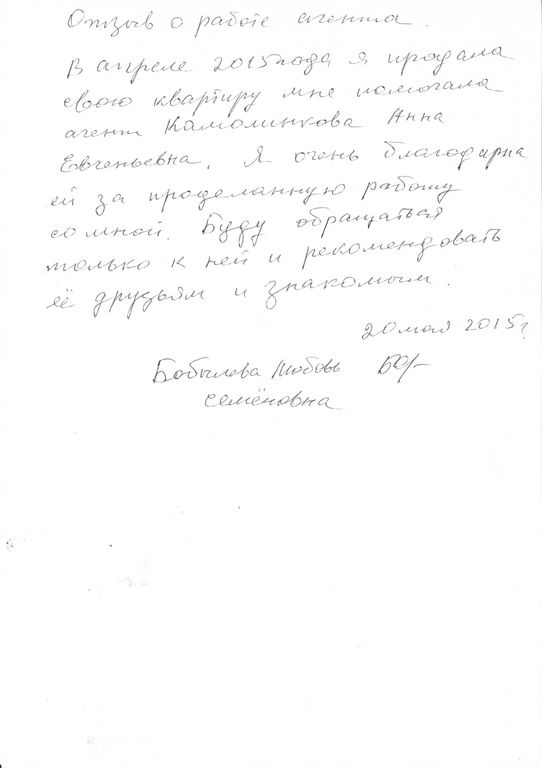 Отзыв о работе агента.
В апреле 2015 года я продала
свою квартиру мне помогала
агент Камолинкова Анна
Евгеньевна. Я очень благодарна
ей за проделанную работу
со мной. Буду обращаться
только к ней и рекомендовать
её друзьям и знакомым.
20 мая 2015 г.
Бобылева Любовь
Семёновна